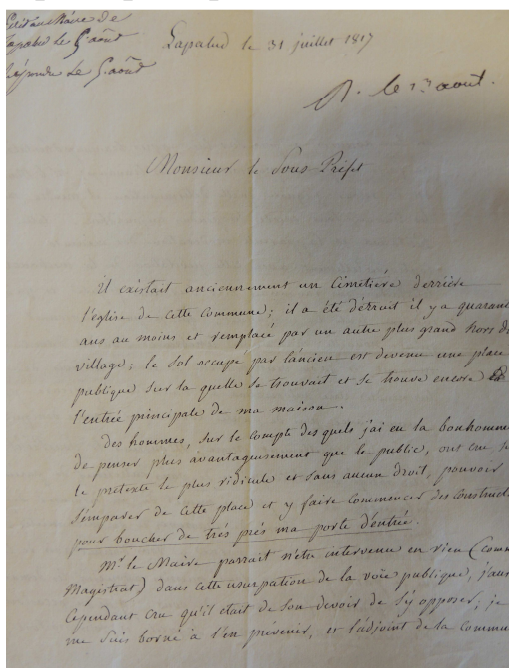 Ecrit au Maire de
Lapalud le 5 août
Répondu le 5 août
Lapalud le 31 juillet 1817
R. le 13 aout.
Monsieur le Sous Préfet
il existait anciennement un Cimetière derrière
l'eglise de cette Commune; il a été détruit il y a quaran
ans au moins et remplacé par un autre plus grand hors d
village; le sol occupe par lancien est devenu une place
publique sur la quelle se trouvait et se trouve encore
l'entrée principale de ma maison.
Des hommes, sur le compte des quels jai eu la bonhomm
de penser plus avantageusement que le public, ont cru
le pretexte le plus ridicule et sans aucun droit, pouvoir
s'emparer de cette place et y faire commencer des construct
pour boucher de trés près ma porte d'entrée.
Mr le Maire parrait n'etre intervenu en rien (comm
Magistrat) dans cette usurpation de la voie publique, j'au
Cependant cru qu'il était de son devoir de s'y opposer; je
me suis borné à l'en prévenir, et l'adjoint de la commu